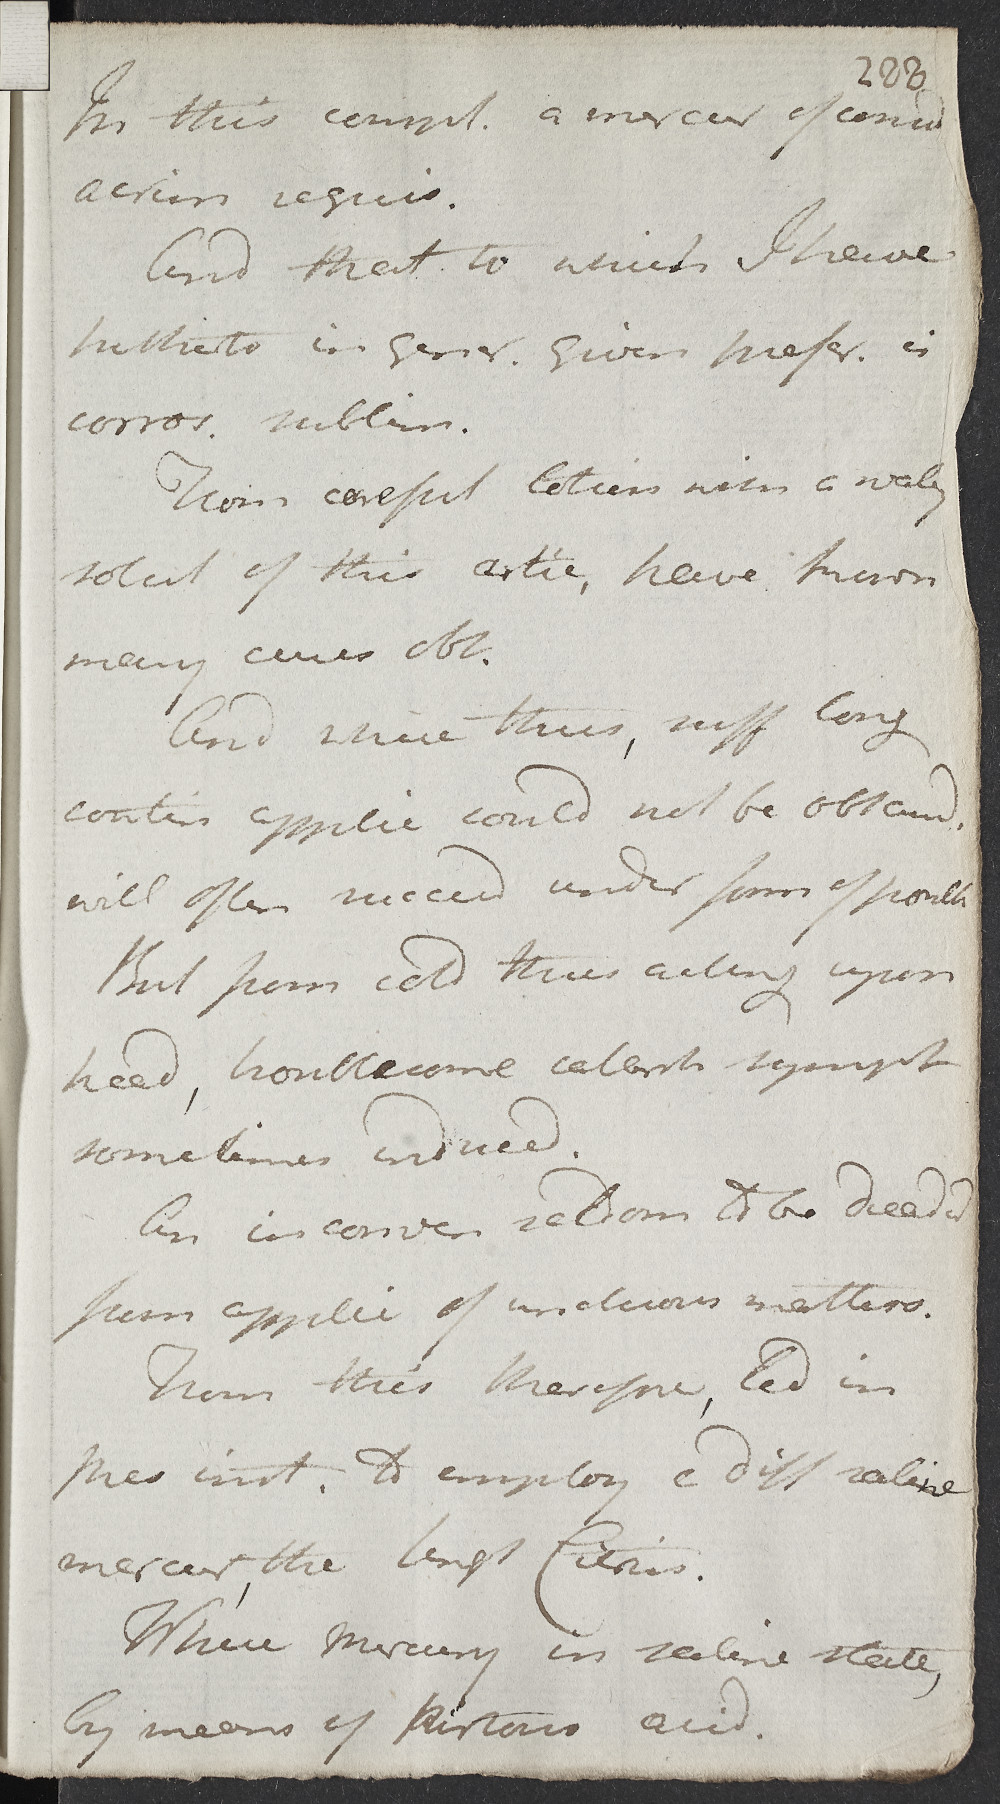 288
In this compl. a mercur of consid
acrim requis.
And that to which I have
hitherto in gener. given prefer. is
corros. sublim.
From careful lotion with a watry
solut of this artic, have known
many cures obt.
And where thus, suff long
contin applic could not be obtaind,
will often succeed under form of poult
But from cold thus acting upon
head, troublesome catarrh sympt
sometimes induced.
An inconven seldom to be dreaded
from applic of unctuous matters.
From this therefore, led in
pres inst. to employ a diff saline
mercur, the Ungt Citrin.
Where Mercury in saline state,
by means of Nitrous acid.